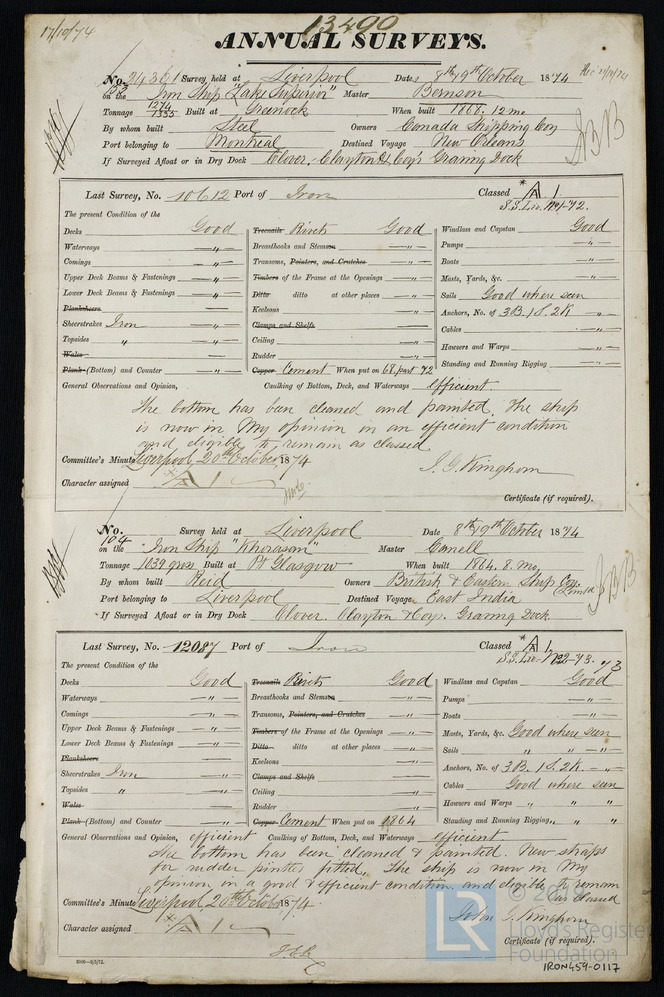 17/10/74
13400
ANNUAL SURVEYS.
No. 24361 Survey held at Liverpool Date, 8th, 9th October 1874
on the Iron Ship "Lake Superior" Master Bernson
Tonnage 1274 1335 Built at Greenock When built 1868. 12 mo
By whom built Steel Owners Canada Shipping Coy
Port belonging to Montreal Destined Voyage New Orleans
If Surveyed Afloat or in Dry Dock Clover, Clayton & Coy's Graving Dock
Last Survey, No. 10612 Port of Iron Classed * A 1
S.S. Liv. No 1-72.
The present Condition of the
Decks Good Treenails Rivets Good Windlass and Capstan Good
Waterways " Breasthooks and Stemson " Pumps "
Comings " Transoms, Pointers, and Crutches " Boats "
Upper Deck Beams & Fastenings " Timbers of the Frame at the Openings " Masts, Yards, &c. "
Lower Deck Beams & Fastenings " Ditto ditto at other places " Sails Good where seen
Planksheers Keelsons " Anchors, No. of 3B. 1S. 2K "
Sheerstrakes Iron " Clamps and Shelfs Cables "
Topsides " " Ceiling " Hawsers and Warps "
Wales Rudder " Standing and Running Rigging "
Plank (Bottom) and Counter " Copper Cement When put on 68, part 72
General Observations and Opinion, Caulking of Bottom, Deck, and Waterways efficient
The bottom has been cleaned and painted. The ship
is now in My opinion in an efficient condition
and eligible to remain as classed
Committee's Minute Liverpool, 20th October, 1874
J. G. Kinghorn
Character assigned * A 1
Certificate (if required).
No. 104 Survey held at Liverpool Date 8th, 9th October 1874
on the Iron Ship "Khorasan" Master Cannell
Tonnage 1039 gross Built at Pt Glasgow When built 1864. 8. mo.
By whom built Reid Owners British & Eastern Ship Coy. Limtd
Port belonging to Liverpool Destined Voyage East India
If Surveyed Afloat or in Dry Dock Clover. Clayton & Coys. Graving Dock
Last Survey, No. 12087 Port of Iron Classed * A 1
S.S. Liv. No 2-73.
The present Condition of the
Decks Good Treenails Rivets Good Windlass and Capstan Good
Waterways " Breasthooks and Stemson " Pumps "
Comings " Transoms, Pointers, and Crutches " Boats "
Upper Deck Beams & Fastenings " Timbers of the Frame at the Openings " Masts, Yards, &c. Good where seen
Lower Deck Beams & Fastenings " Ditto ditto at other places " Sails " " "
Planksheers Keelsons " Anchors, No. of 3B. 1S. 2K. "
Sheerstrakes Iron " Clamps and Shelfs Cables Good where seen
Topsides " " Ceiling " Hawsers and Warps " " "
Wales Rudder " Standing and Running Rigging " " "
Plank (Bottom) and Counter " Copper Cement When put on 1864
General Observations and Opinion, efficient Caulking of Bottom, Deck, and Waterways efficient
The bottom has been cleaned & painted. New straps
for rudder pintles fitted. The ship is now in My
opinion in a good & efficient condition and eligible to remain
as classed
Committee's Minute Liverpool, 20th October 1874.
John G. Kinghorn
Character assigned * A 1
Certificate (if required).
LR
Lloyd's Register
Foundation
IRON459-0117